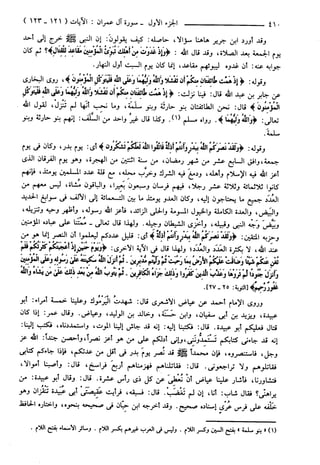 ٤١٠ الجزء الأول ـ سورة آل عمران : الآيات (١٢١ ـ ١٢٣)
وقد أورد ابن جرير هاهنا سؤالا، حاصله: كيف يقولون: إن النبي ﷺ خرج إلى أحد
يوم الجمعة بعد الصلاة، وقد قال الله : ﴿وإذ غدوت من أهلك تبوئ المؤمنين مقاعد للقتال﴾؟ ثم كان
جوابه عنه: أن غدوه ليبوئهم مقاعد، إنما كان يوم السبت أول النهار.
وقوله: ﴿إذ همت طائفتان منكم أن تفشلا والله وليهما وعلى الله فليتوكل المؤمنون﴾، روى البخاري
عن جابر بن عبد الله قال: فينا نزلت: ﴿إذ همت طائفتان منكم أن تفشلا والله وليهما وعلى الله فليتوكل
المؤمنون﴾ قال: نحن الطائفتان بنو حارثة وبنو سلمة، وما نحب أنها لم تنزل، لقول الله
تعالى: ﴿والله وليهما﴾. ورواه مسلم (١). وكذا قال غير واحد من السلف: إنهم بنو حارثة وبنو
سلمة.
وقوله: ﴿ولقد نصركم الله ببدر وأنتم أذلة فاتقوا الله لعلكم تشكرون﴾ أي: يوم بدر، وكان في يوم
جمعة، وافق السابع عشر من شهر رمضان، من سنة اثنتين من الهجرة، وهو يوم الفرقان الذي
أعز الله فيه الإسلام وأهله، ودمغ فيه الشرك وخرب محله، مع قلة عدد المسلمين يومئذ، فإنهم
كانوا ثلاثمائة وثلاثة عشر رجلا، فيهم فرسان وسبعون بعيرا، والباقون مشاة، ليس معهم من
العدد جميع ما يحتاجون إليه، وكان العدو يومئذ ما بين التسعمائة إلى الألف في سوابغ الحديد
والبيض، والعدة الكاملة والخيول المسومة والحلي الزائد، فأعز الله رسوله، وأظهر وحيه وتنزيله،
وبيض وجه النبي وقبيله، وأخزى الشيطان وجيله. ولهذا قال تعالى ـ ممتنا على عباده المؤمنين
وحزبه المتقين: ﴿ولقد نصركم الله ببدر وأنتم أذلة﴾ أي: قليل عددكم ليعلموا أن النصر إنما هو من
عند الله، لا بكثرة العدد والعدد؛ ولهذا قال في الآية الأخرى: ﴿ويوم حنين إذ أعجبتكم كثرتكم فلم
تغن عنكم شيئا وضاقت عليكم الأرض بما رحبت ثم وليتم مدبرين. ثم أنزل الله سكينته على رسوله وعلى المؤمنين
وأنزل جنودا لم تروها وعذب الذين كفروا وذلك جزاء الكافرين. ثم يتوب الله من بعد ذلك على من يشاء والله
غفور رحيم﴾ [التوبة: ٢٥ ـ ٢٧].
وروى الإمام أحمد عن عياض الأشعري قال: شهدت اليرموك وعلينا خمسة أمراء: أبو
عبيدة، ويزيد بن أبي سفيان، وابن حسنة، وخالد بن الوليد، وعياض. وقال عمر: إذا كان
قتال فعليكم أبو عبيدة. قال: فكتبنا إليه: إنه قد جاش إلينا الموت، واستمددناه، فكتب إلينا:
إنه قد جاءني كتابكم تستمدونني، وإني أدلكم على من هو أعز نصرا، وأحصن جندا: الله عز
وجل، فاستنصروه، فإن محمدا ﷺ قد نصر يوم بدر في أقل من عدتكم، فإذا جاءكم كتابي
فقاتلوهم ولا تراجعوني. قال: فقاتلناهم فهزمناهم أربع فراسخ، قال: وأصبنا أموالا،
فتشاورنا، فأشار علينا عياض أن نعطي عن كل ذي رأس عشرة. قال: وقال أبو عبيدة: من
يراهنني؟ فقال شاب: أنا، إن لم تغضب. قال: فسبقه، فرأيت عقيصتي أبي عبيدة تنقزان وهو
خلفه على فرس عري إسناده صحيح. وقد أخرجه ابن حبان في صحيحه بنحوه، واختاره الحافظ
(١) «بنو سلمة» بفتح السين وكسر اللام. وليس في العرب غيرهم بكسر اللام. وسائر الأسماء بفتح اللام.